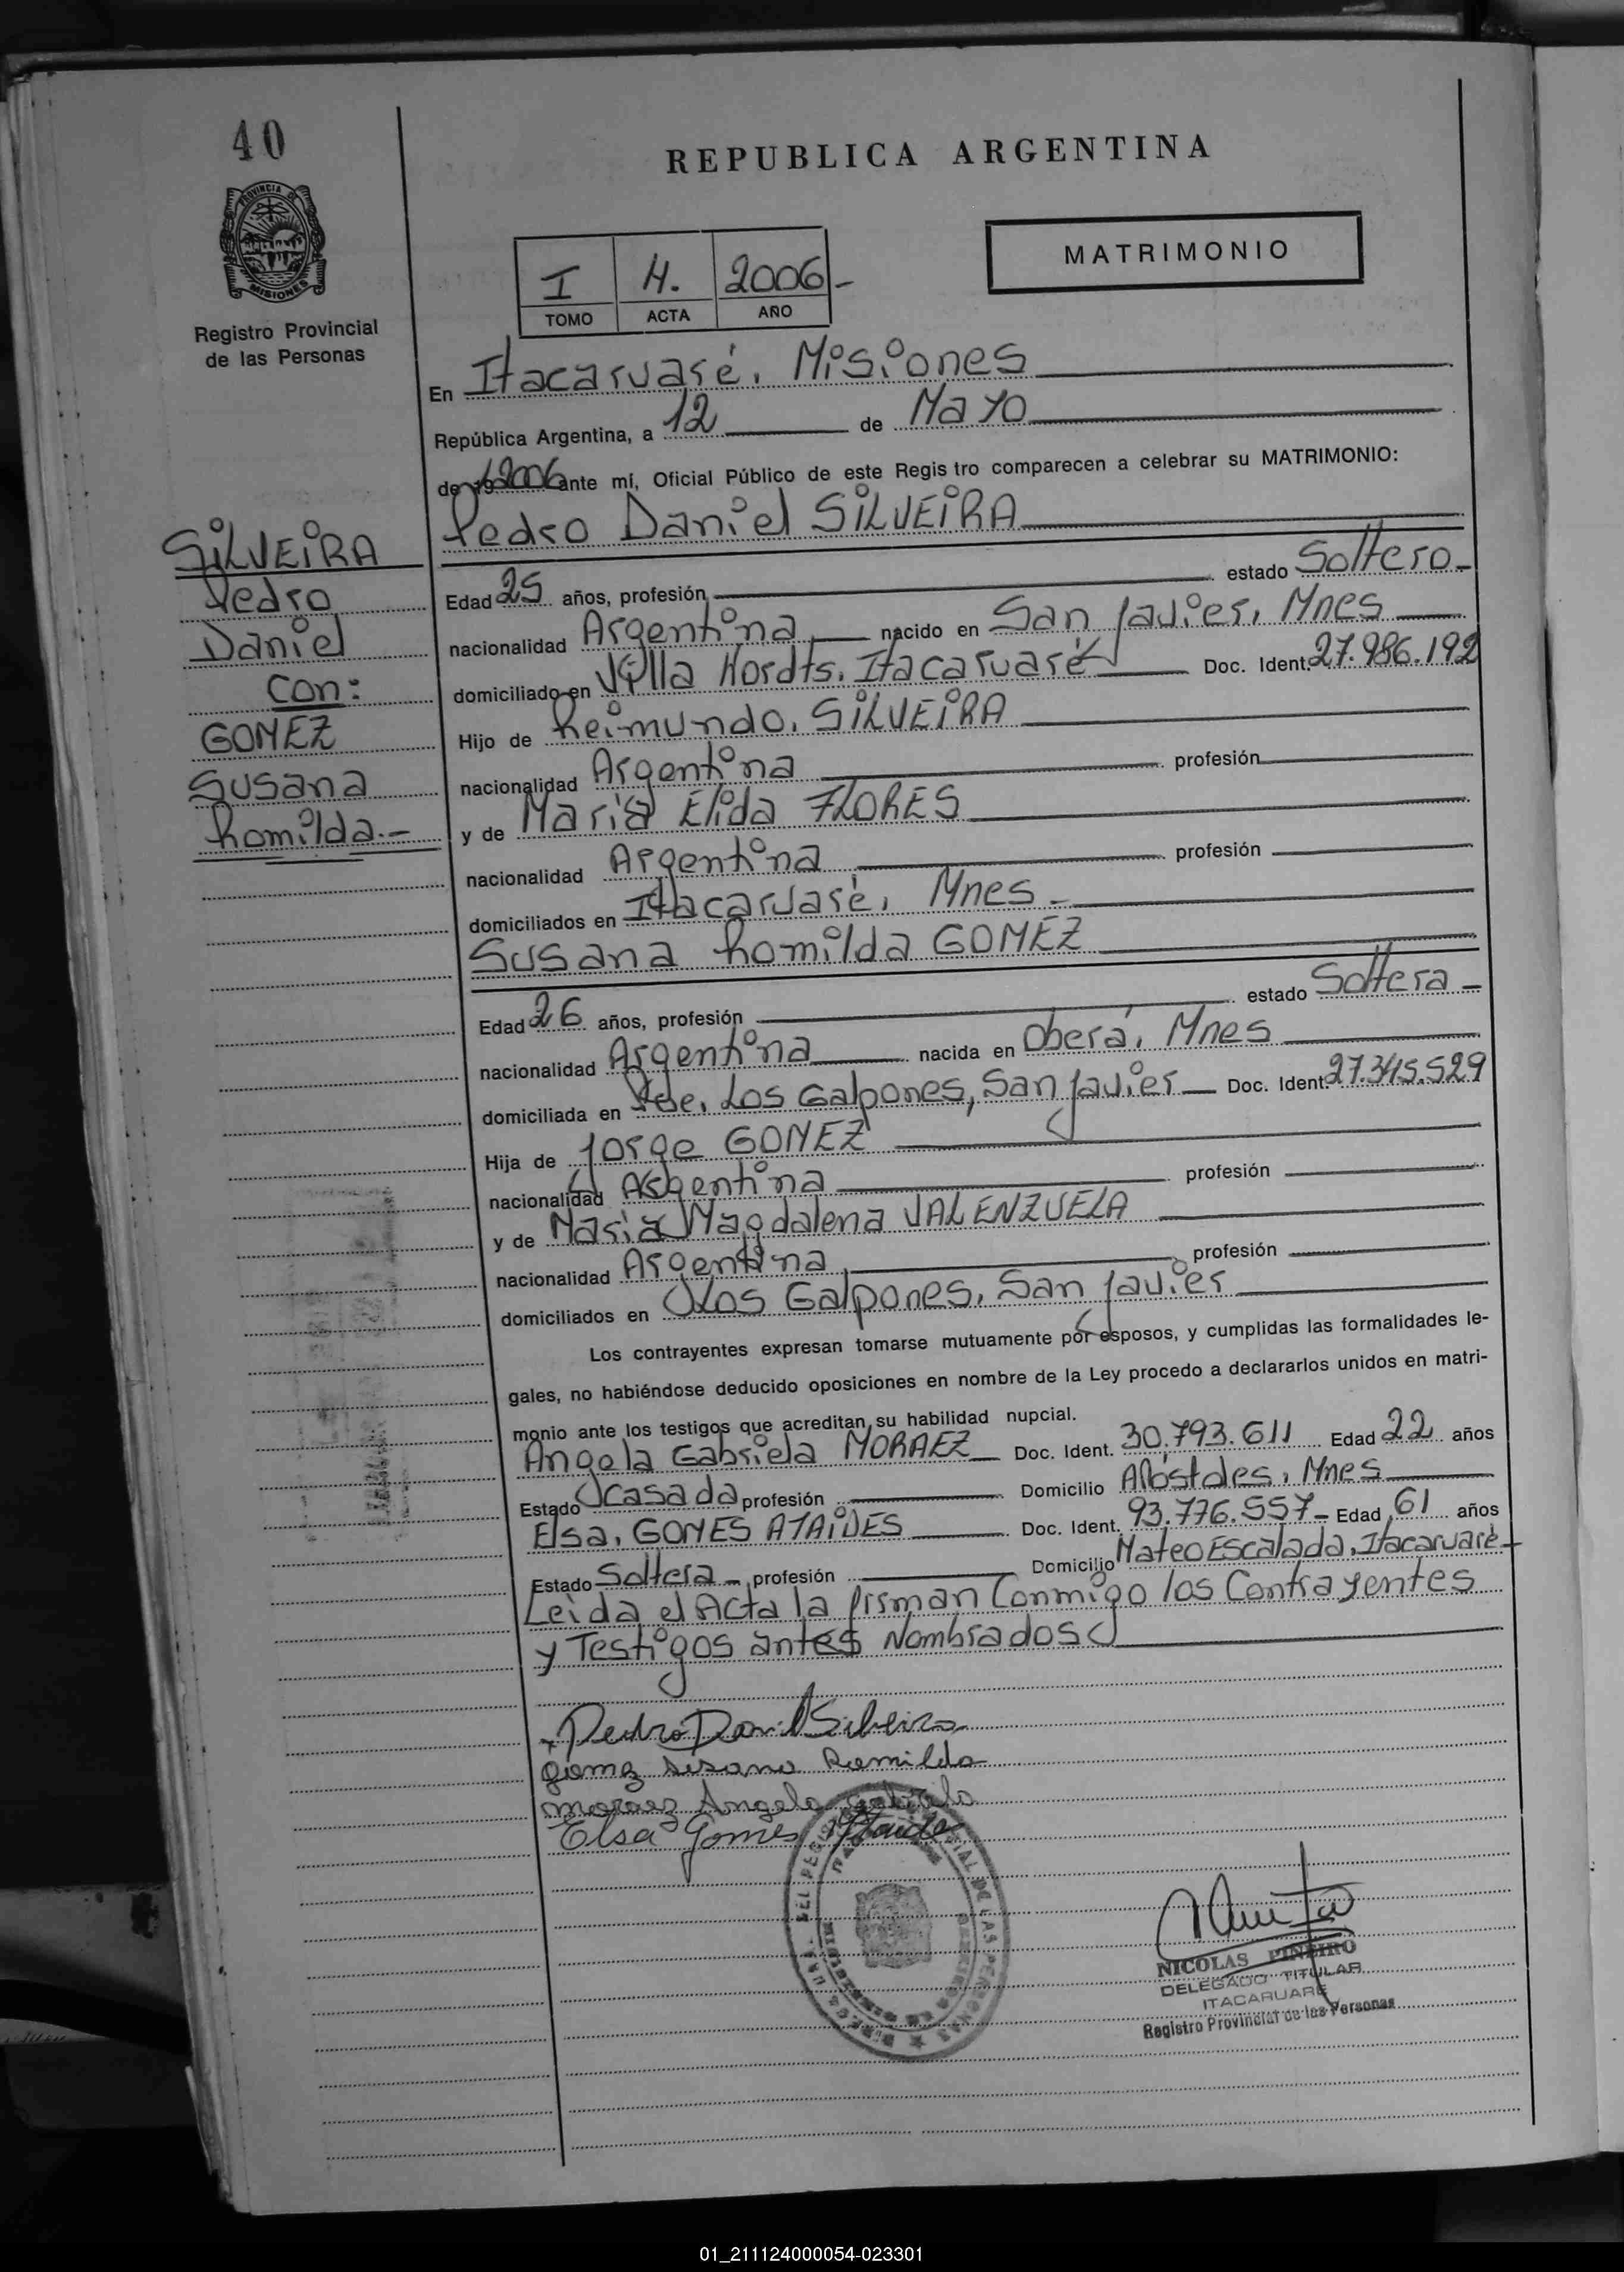 40
REPUBLICA ARGENTINA
PROVINCIA DE
MISIONES
MATRIMONIO
I 4. 2006-
TOMO ACTA AÑO
Registro Provincial
de las Personas
En Itacaruaré, Misiones
República Argentina, a 12 de Mayo
de 19 2006 ante mí, Oficial Público de este Regis tro comparecen a celebrar su MATRIMONIO:
Pedro Daniel SILVEIRA
SILVEIRA
Pedro
Daniel
con:
GOMEZ
Susana
Romilda.-
Edad 25 años, profesión estado Soltero-
nacionalidad Argentina nacido en San Javier, Mnes
domiciliado en Villa Hordts, Itacaruaré Doc. Ident. 27.986.192
Hijo de Reimundo, SILVEIRA
nacionalidad Argentina profesión
y de María Elida FLORES
nacionalidad Argentina profesión
domiciliados en Itacaruaré, Mnes-
Susana Romilda GOMEZ
Edad 26 años, profesión estado Soltera-
nacionalidad Argentina nacida en Oberá, Mnes
domiciliada en Pde, Los Galpones, San Javier Doc. Ident 27.345.529
Hija de Jorge GOMEZ
nacionalidad Argentina profesión
y de Maria Magdalena VALENZUELA
nacionalidad Argentina profesión
domiciliados en Los Galpones, San Javier
Los contrayentes expresan tomarse mutuamente por esposos, y cumplidas las formalidades le-
gales, no habiéndose deducido oposiciones en nombre de la Ley procedo a declararlos unidos en matri-
monio ante los testigos que acreditan su habilidad nupcial.
Angela Gabriela MORAEZ Doc. Ident. 30.793.611 Edad 22 años
Estado casada profesión Domicilio Apóstoles, Mnes
Elsa, GOMES ATAIDES Doc. Ident. 93.776.557- Edad 61 años
Estado Soltera- profesión Domicilio Mateo Escalada, Itacaruaré-
Leida el Acta la firman Conmigo los Contrayentes
y Testigos antes Nombrados
Pedro Daniel Silveira
Gomez Susana Romilda
Moraez Angela Gabriela
Elsa Gomes Ataide
NICOLAS PIÑEIRO
DELEGADO TITULAR
ITACARUARE
Registro Provincial de las Personas
01_211124000054-023301